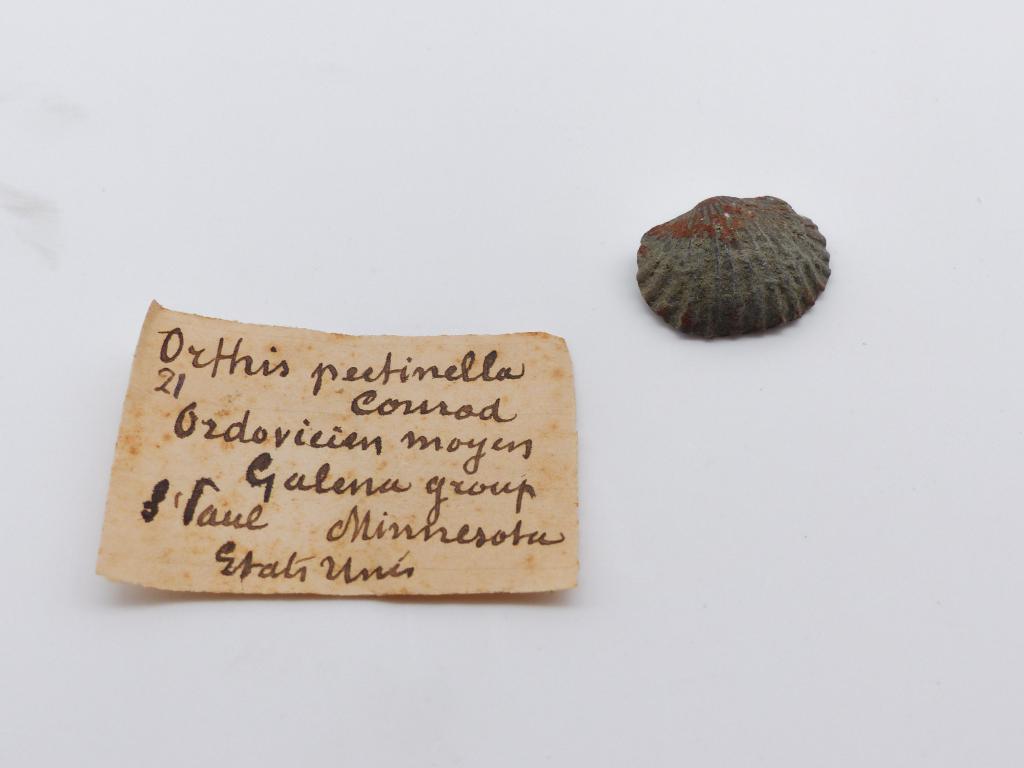 Orthis pectinella
21
Conrad
Ordovicien moyen
Galena group
St Paul Minnesota
Etats Unis